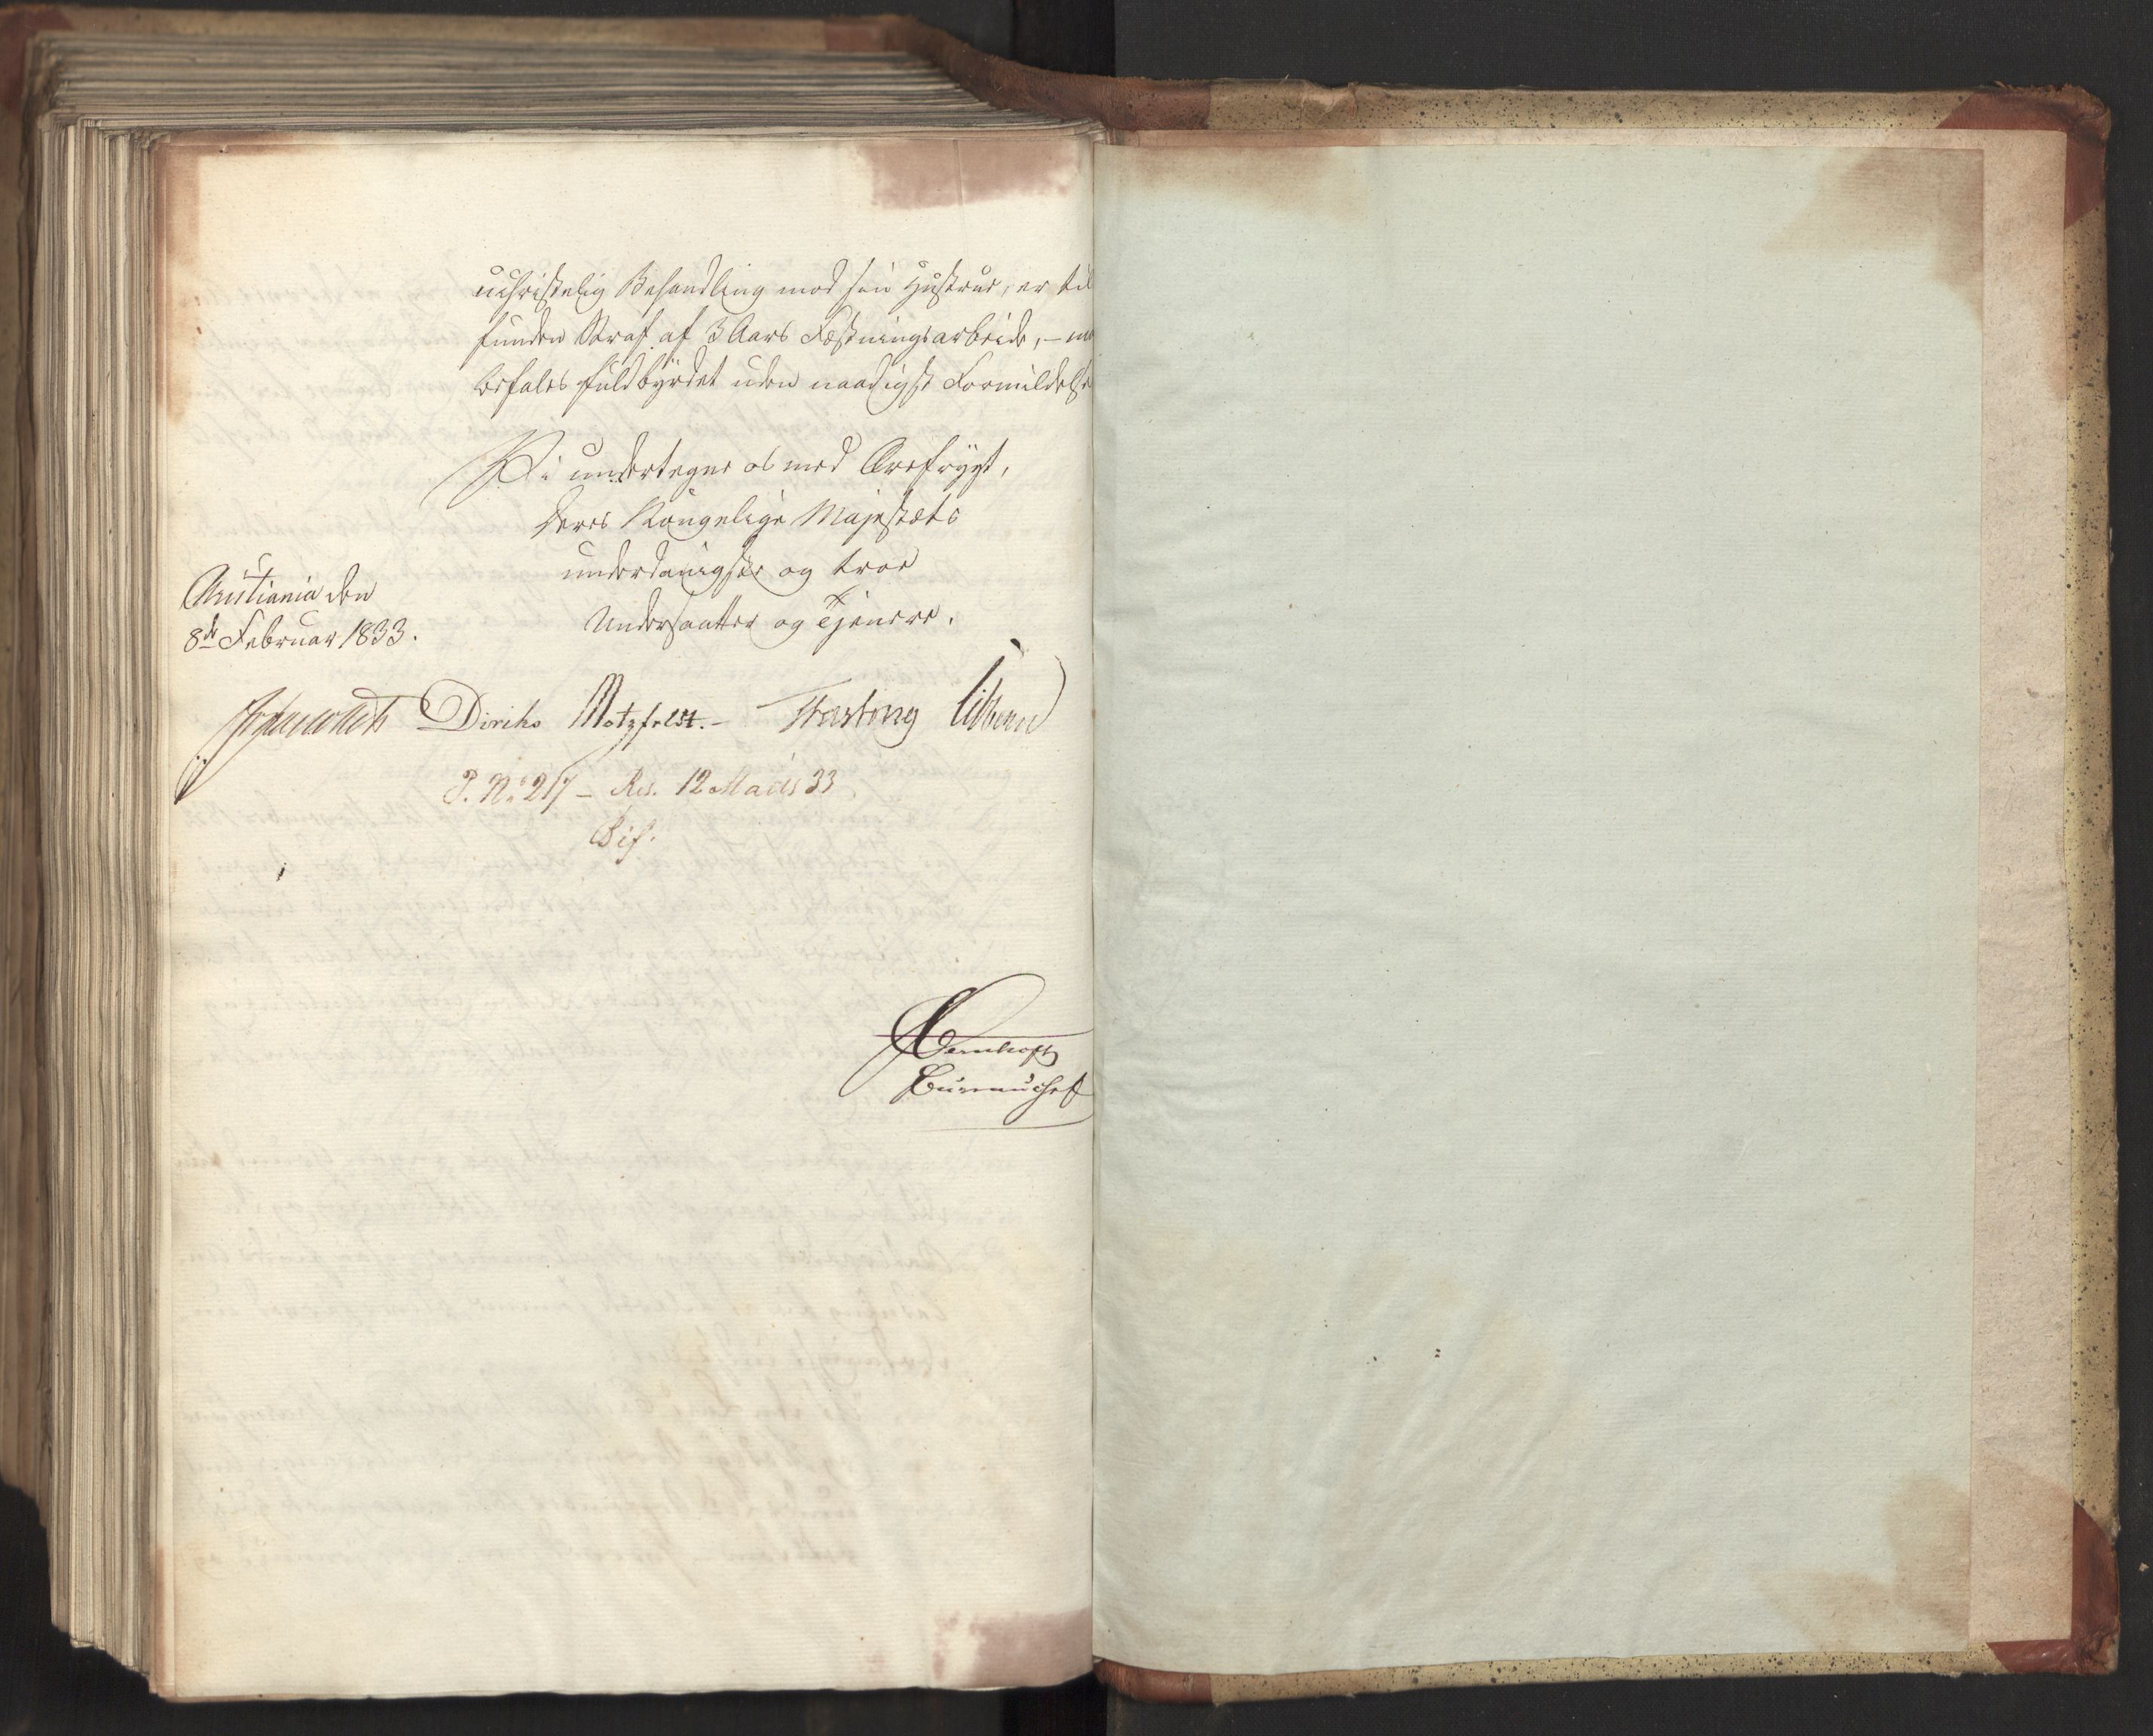 uchristelig Behandling mod sin Hustrue, er til
funden Straf af 3 Aars Fæstningsarbeide, –
befales fuldbyrdet uden naadigst Formildelse
Vi undertegne os med Ærefrygt,
Deres Kongelige Majestæts
underdanigste og troe
Undersaatter og Tjenere.
Christiania den
8de Februar 1833.
Diriks Motzfeldt. – Fasting
P. No 217 – Res. 12 Marts 33
Bif.
Bureauchef